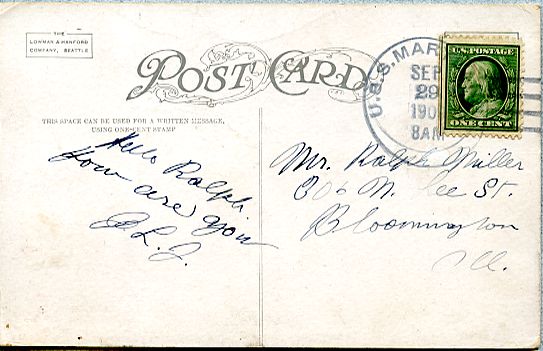 THE
LOWMAN & HANFORD
COMPANY, SEATTLE
POST CARD
THIS SPACE CAN BE USED FOR A WRITTEN MESSAGE,
USING ONE-CENT STAMP
Hello Ralph.
How are you
U.S.S. MAR
SEP
29
190
8AM
U.S. POSTAGE
ONE CENT
Mr. Ralph Miller
N. Lee St.
Bloomington
Ill.